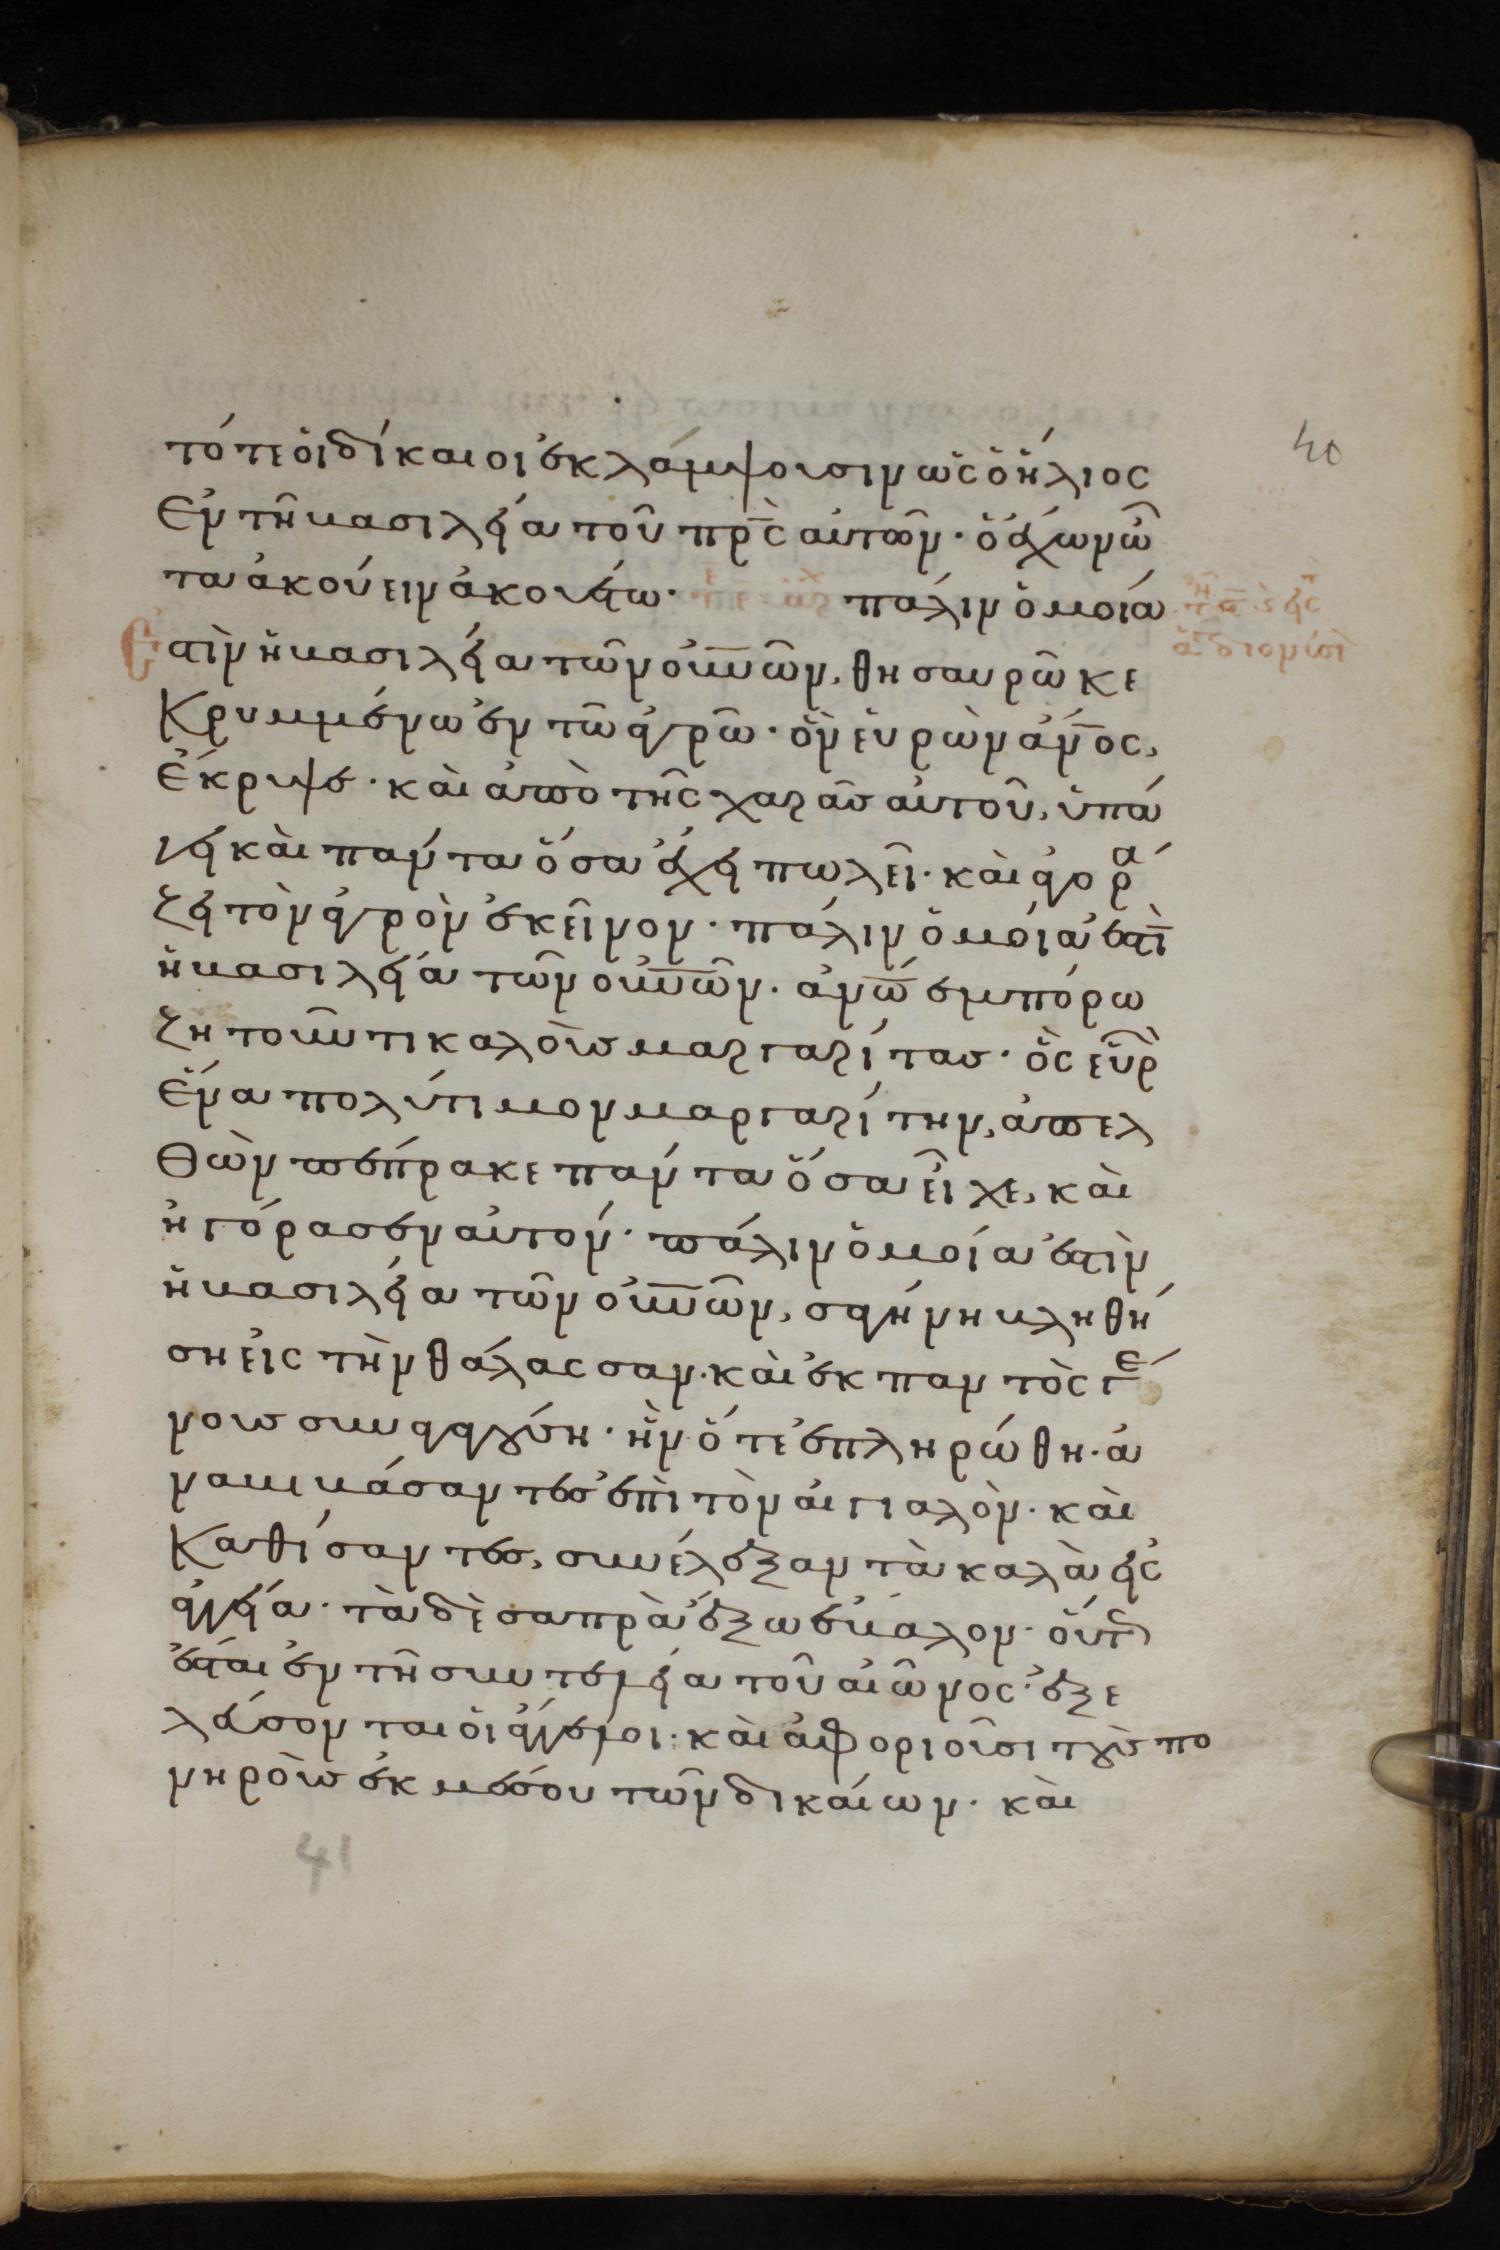 τότε ὁι δίκαιοι ἐκλάμψουσιν ὡς ὁ ἥλιος
ἐν τῆ βασιλεία τοῦ πρ̅ς αὐτῶν· ὁ ἔχων ὦ
τα ἀκούειν ἀκουέτω· πάλιν ὁμοία
ἐστὶν ἡ βασιλεία τῶν οὐν̅ῶν, θησαυρῶ κε
κρυμμένω ἐν τῶ ἀγρῶ· ὃν εὑρὼν ἄν̅ος,
ἔκρυψε· καὶ ἀπὸ τῆς χαρᾶς αὐτοῦ, ὑπά
γει καὶ πάντα ὅσα ἔχει πωλεῖ· καὶ ἀγορά
ζει τὸν ἀγρὸν ἐκεῖνον· πάλιν ὁμοία ἐστὶ
ἡ βασιλεία τῶν οὐν̅ῶν· ἀν̅ω ἐμπόρω
ζητοῦντι καλοὺς μαργαρίτας· ὃς εὑρὼ
ἕνα πολύτιμον μαργαρίτην, ἀπελ
θὼν πέπρακε πάντα ὅσα εἶχε, καὶ
ἠγόρασεν αὐτόν· πάλιν ὁμοία ἐστὶν
ἡ βασιλεία τῶν οὐν̅ῶν, σαγήνη βληθεί
ση εἰς τὴν θάλασσαν· καὶ ἐκ παντὸς γέ
νους συναγαγούση· ἣν ὅτε ἐπληρώθη· ἀ
ναβιβάσαντες ἐπὶ τὸν αἰγιαλὸν· καὶ
καθίσαντες, συνέλεξαν τὰ καλὰ εἰς
ἀγγεία· τὰ δὲ σαπρὰ ἔξω ἔβαλον· οὕτως
ἔσται ἐν τῆ συντελεία τοῦ αἰῶνος· ἐξε
λεύσονται ὁι ἄγγελοι· καὶ ἀφοριοῦσι τοὺς πο
νηροὺς ἐκ μέσου τῶν δικαίων· καὶ
40
41